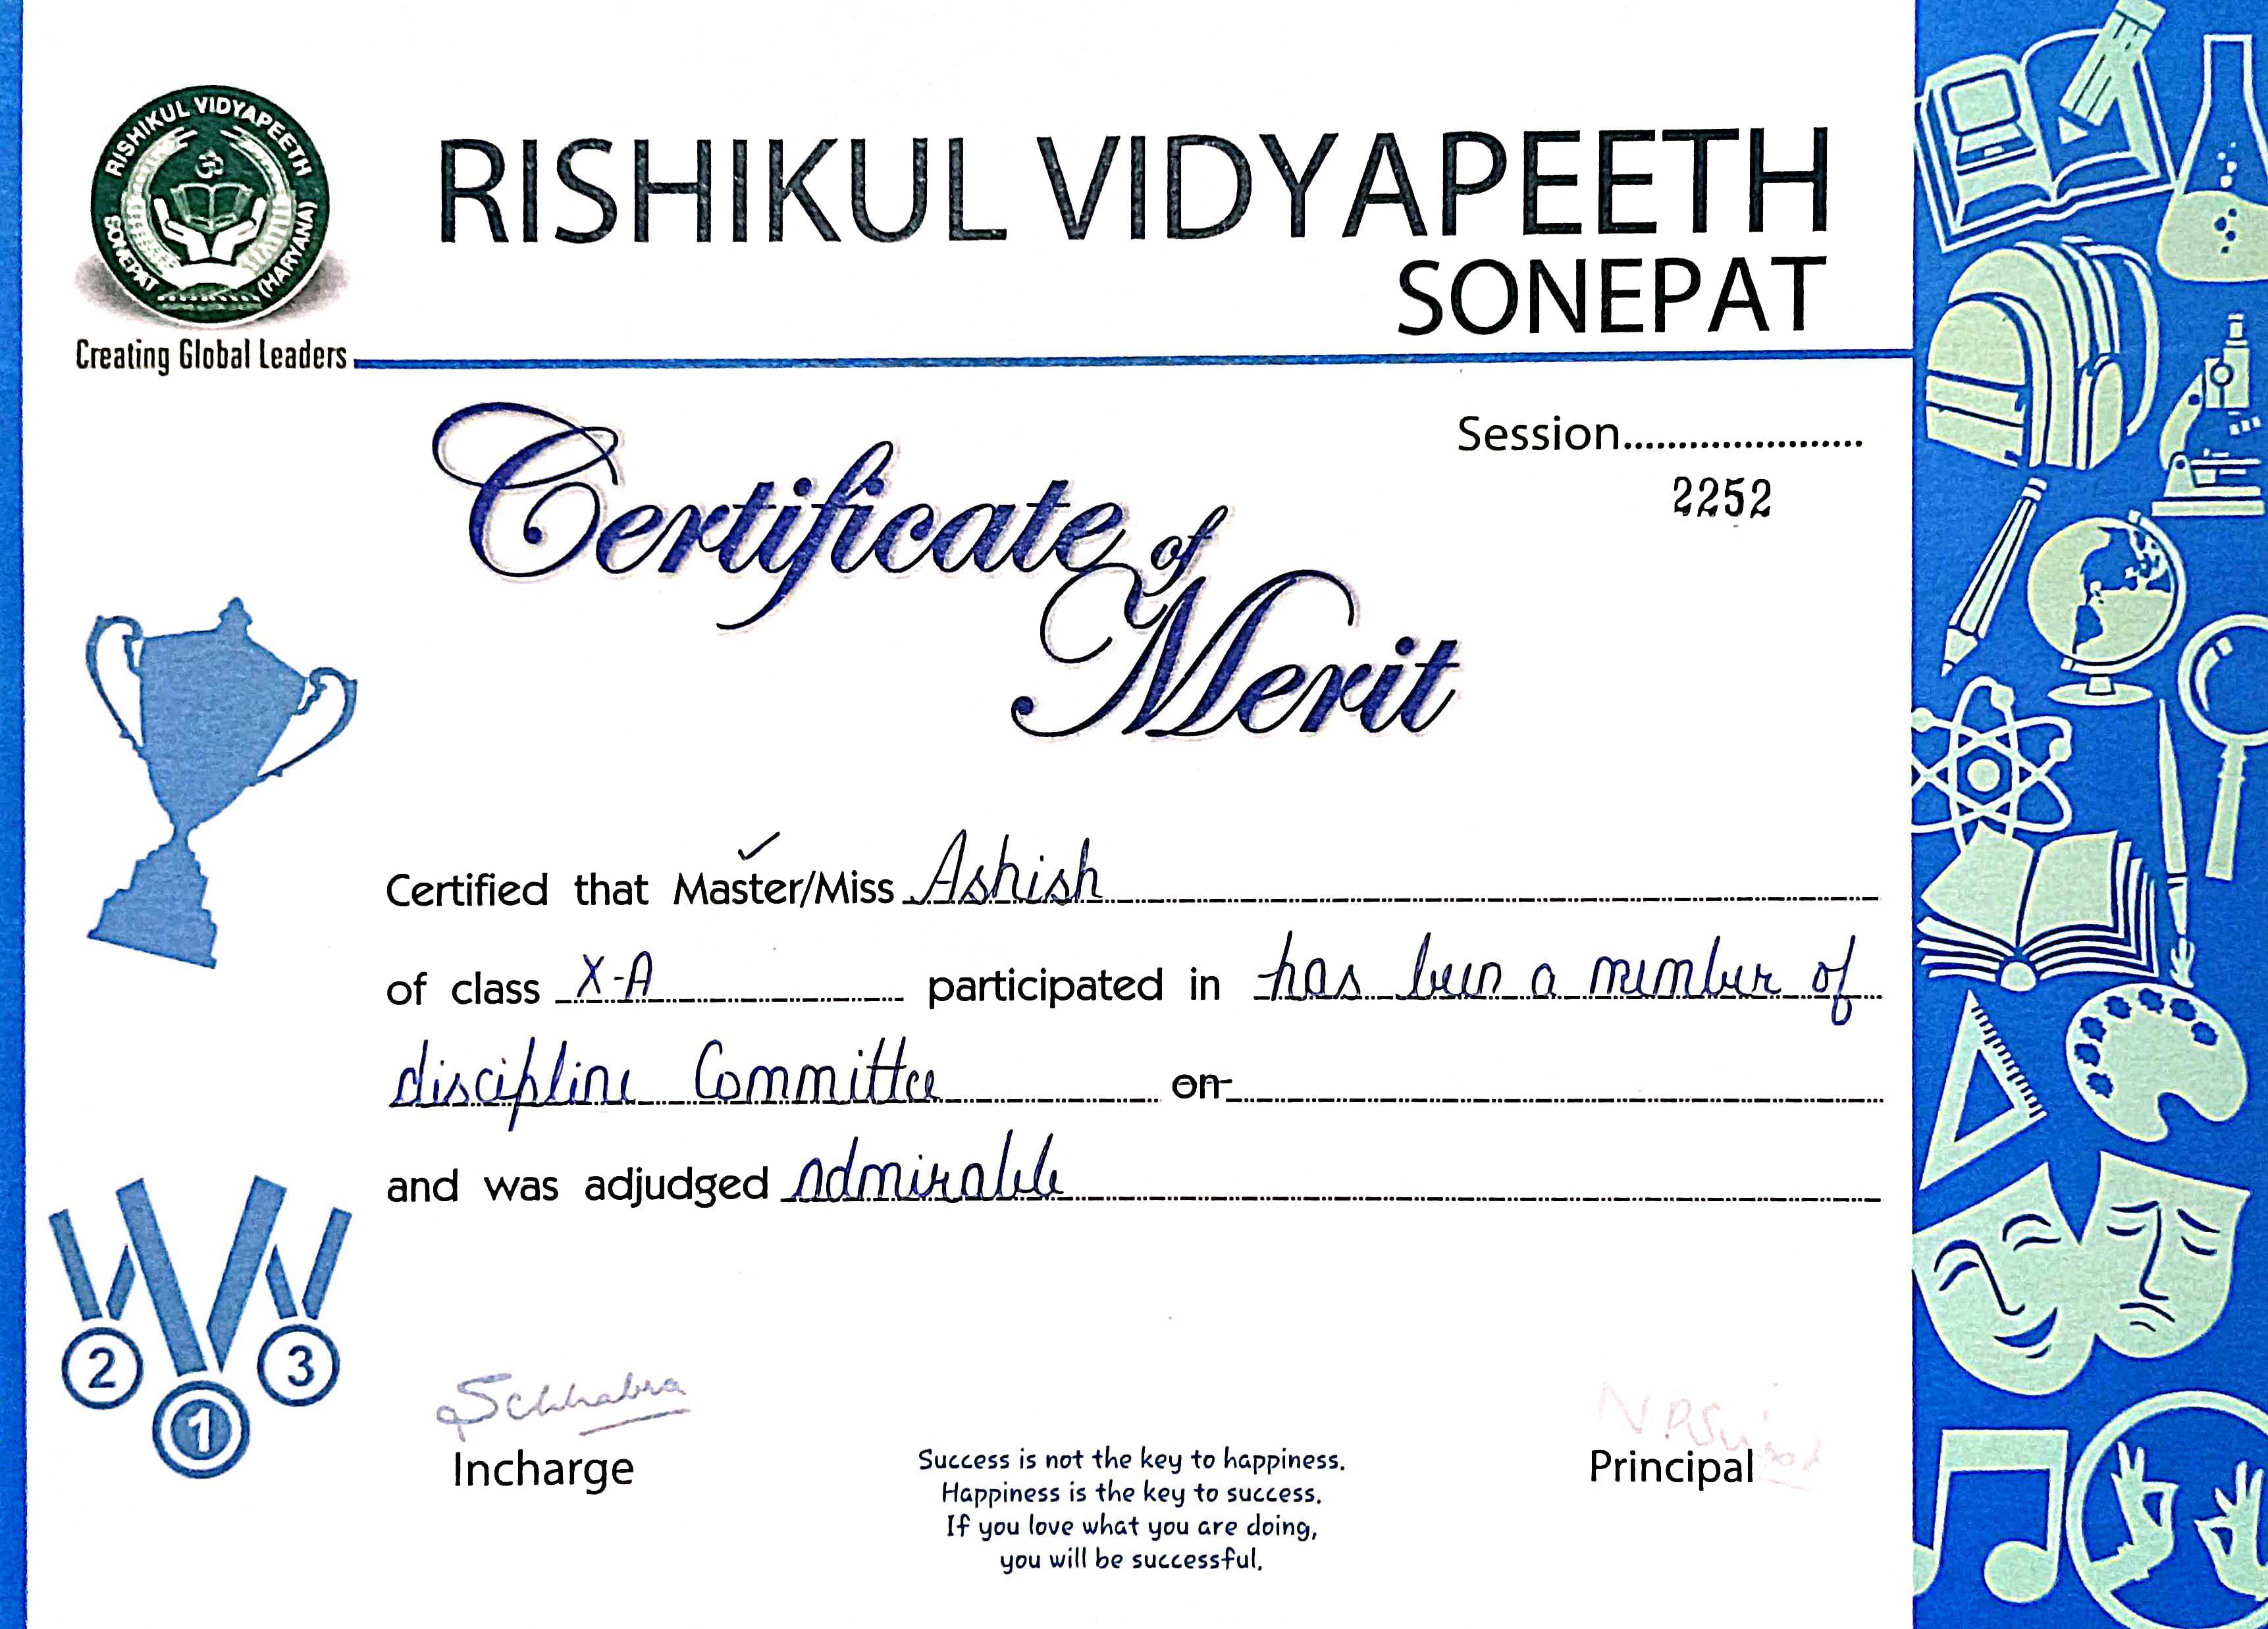 RISHIKUL VIDYAPEETH
SONEPAT (HARYANA)
Creating Global Leaders
RISHIKUL VIDYAPEETH
SONEPAT
Session......................
2252
Certificate of
Merit
Certified that Master/Miss Ashish
of class X-A participated in has been a member of
discipline Committee on
and was adjudged admirable
2 1 3
Schhabra
Incharge
Principal
Success is not the key to happiness.
Happiness is the key to success.
If you love what you are doing,
you will be successful.